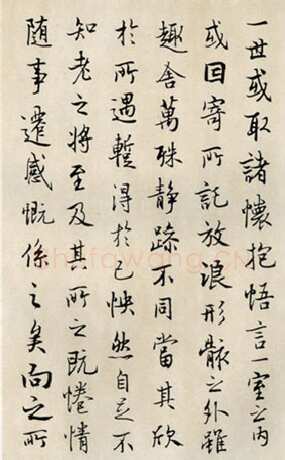 一世或取諸懷抱悟言一室之內
或因寄所託放浪形骸之外雖
趣舍萬殊静躁不同當其欣
於所遇蹔得於己怏然自足不
知老之將至及其所之既惓情
随事遷感慨係之矣向之所